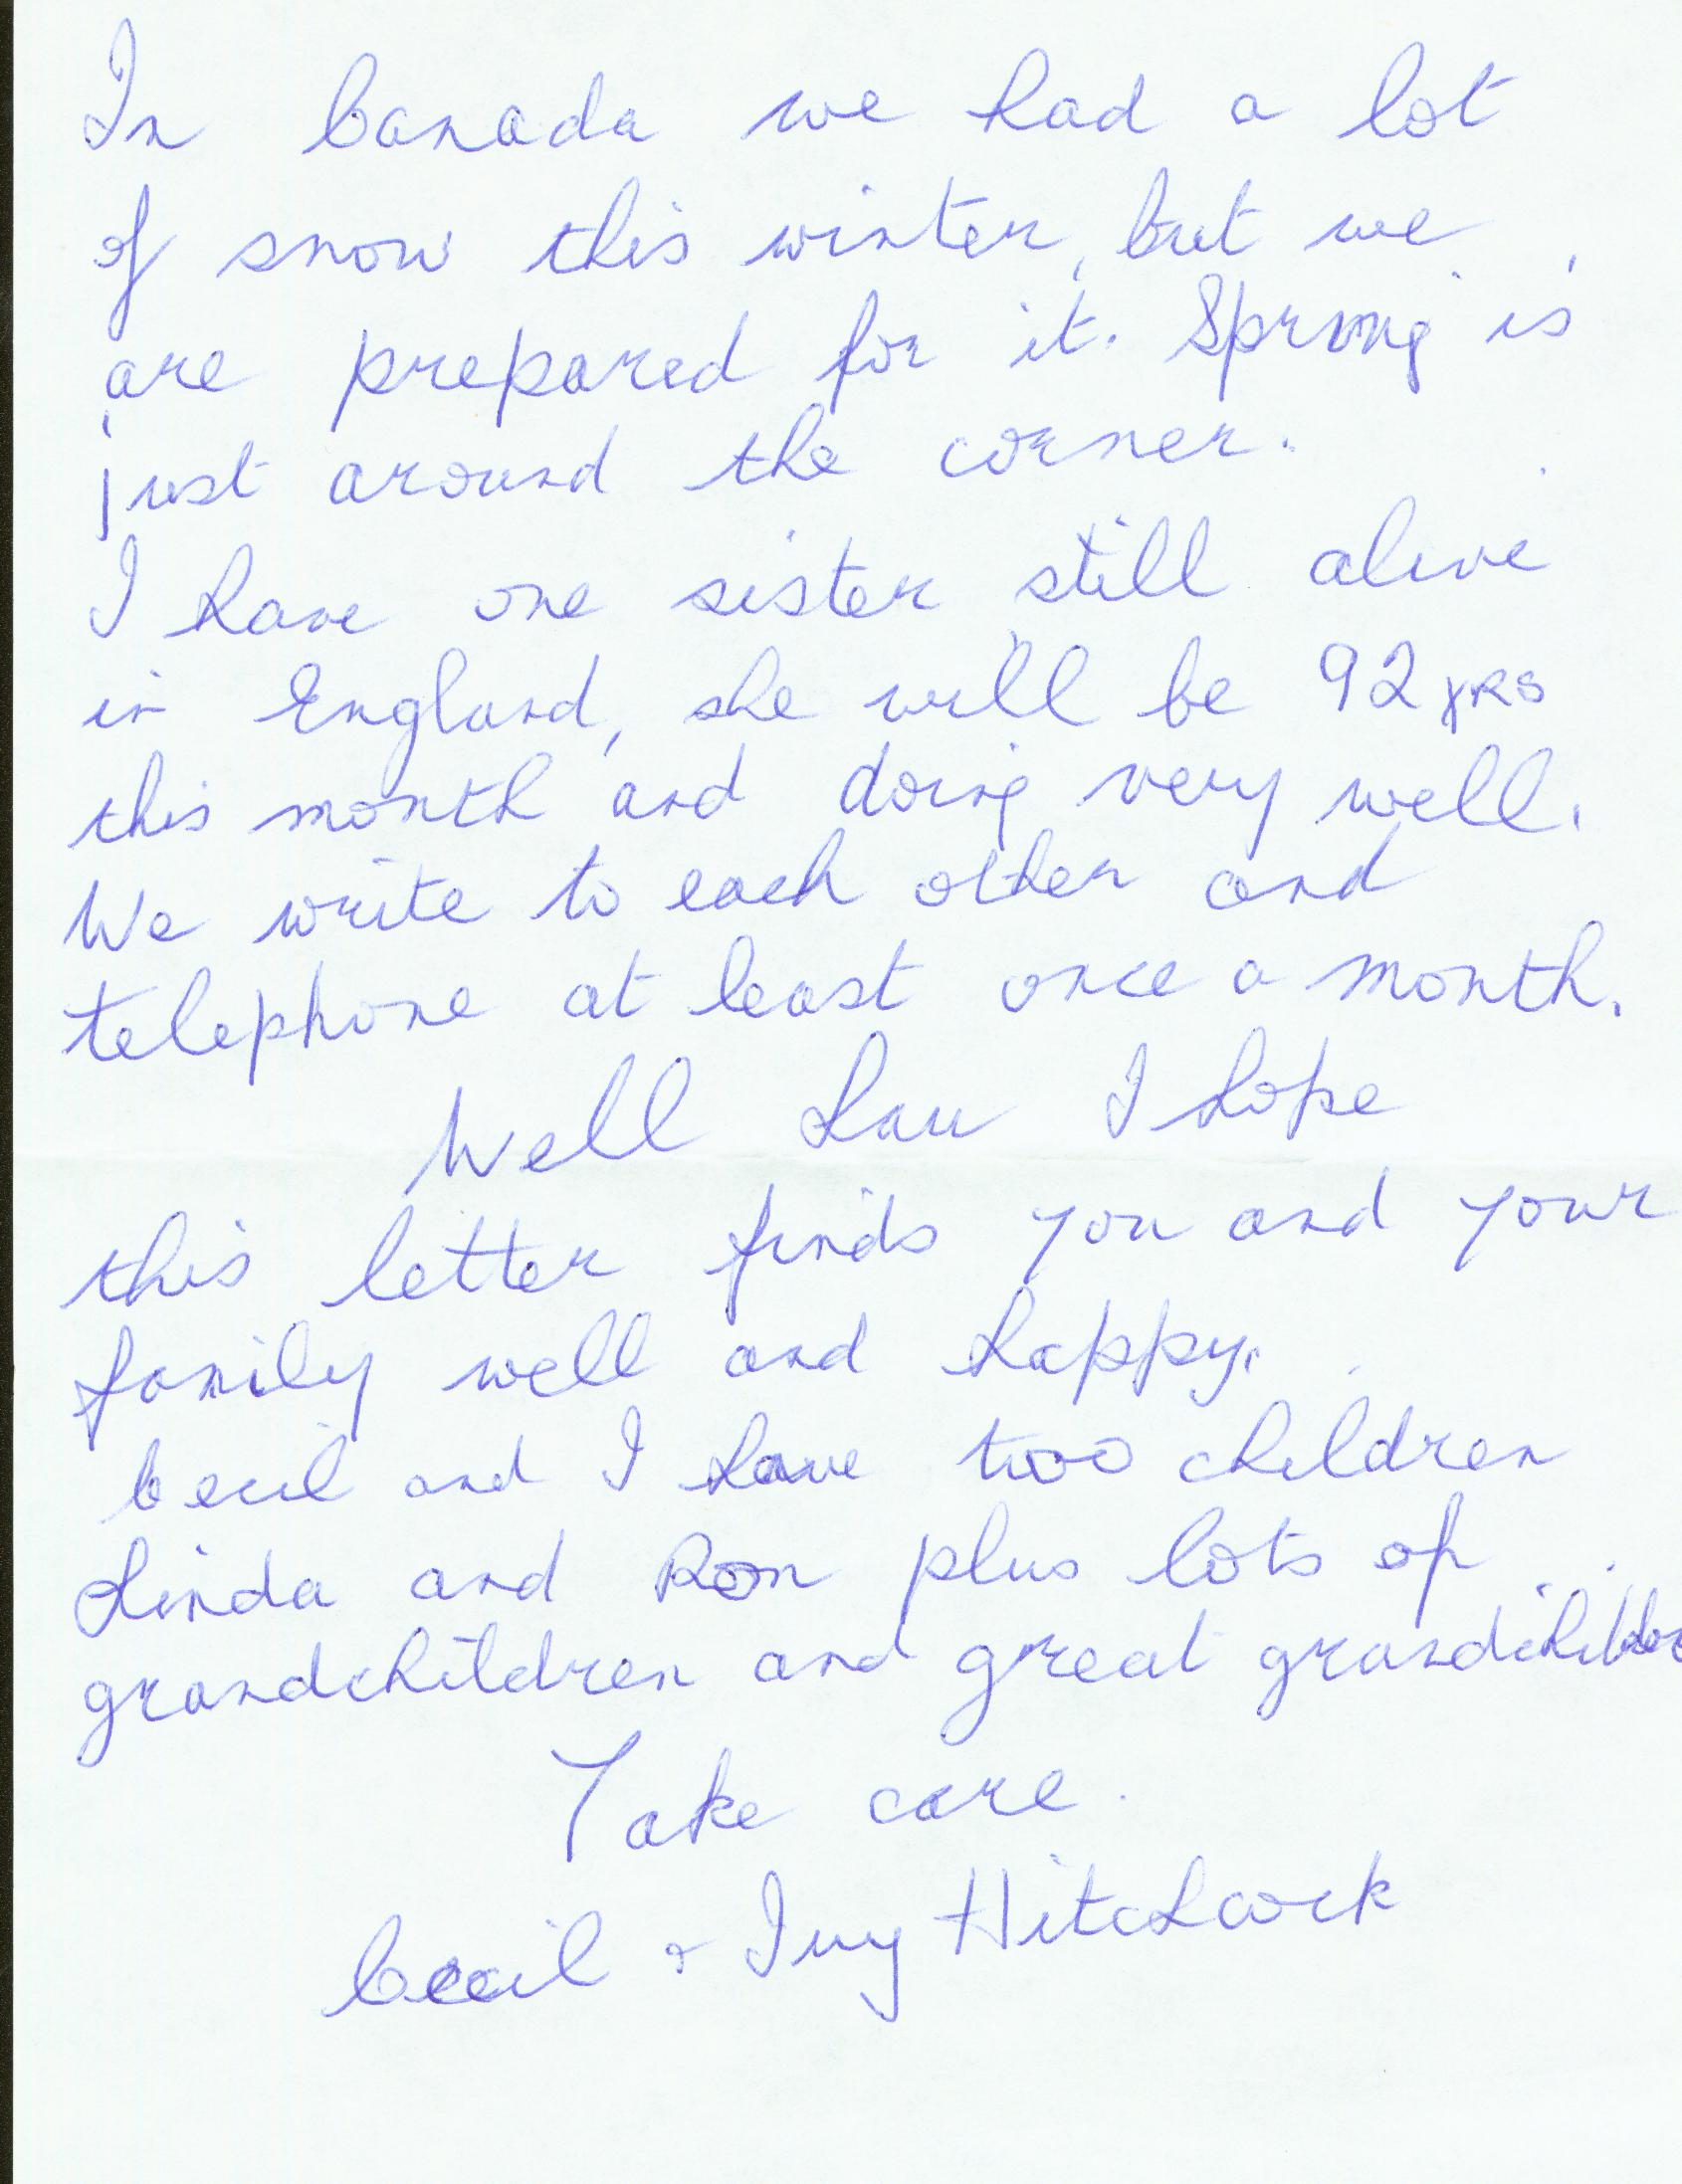 In Canada we had a lot
of snow this winter, but we
are prepared for it. Spring is
just around the corner.
I have one sister still alive
in England, she will be 92 YRS
this month and doing very well.
We write to each other and
telephone at least once a month.
Well Lau I hope
this letter finds you and your
family well and happy.
Cecil and I have two children
Linda and Ron plus lots of
grandchildren and great grandchildre
Take care.
Cecil & Ivy Hitchcock